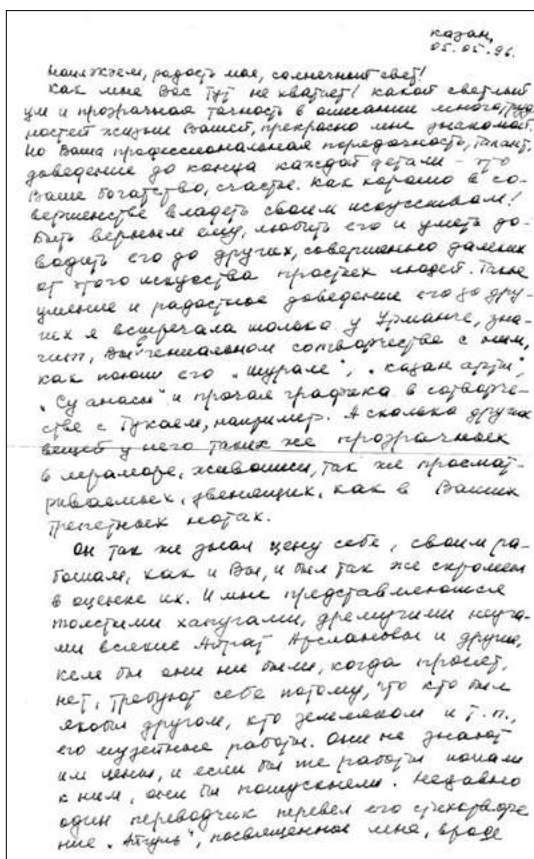 Казан,
05.05.96.
радость моя, солнечный свет!
Как мне Вас тут не хватает! Какой светлый
ум и прозрачная точность в описании многотруд
ностей жизни Вашей, прекрасно мне знакомой.
Но Ваша профессиональная порядочность, талант,
доведение до конца каждой детали – это
Ваше богатство, счастье. Как хорошо в со-
вершенстве владеть своим искусством!
Быть верным ему, любить его и уметь до-
водить его до других, совершенно далеких
от этого искусства простых людей. Такое
умение и радостное доведение его до дру-
гих я встречала только у Урманче, зна-
чит, Вы в гениальном сотворчестве с ним,
как его "Шурале", "Казан арты",
"Су анасы" и прочая графика в сотворче-
стве с Тукаем, например. А сколько других
вещей у него таких же прозрачных
в мраморе, живописи, так же просмат-
риваемых, звенящих, как в Ваших
трепетных нотах.
Он так же знал цену себе, своим ра-
ботам, как и Вы, и был так же скромен
в оценке их. И мне представляются
толстыми хапугами, дремучими неуча-
ми всякие Айрат Арслановы и другие,
кем бы они ни были, когда просят,
нет, требуют себе потому, что кто был
якобы другом, кто земляком и т.п.,
его музейные работы. Они не знают
им цены, и если бы те же работы попали
к ним, они бы потускнели. Недавно
один переводчик перевел его стихотворе
ние "Айгуль", посвященное мне, вроде